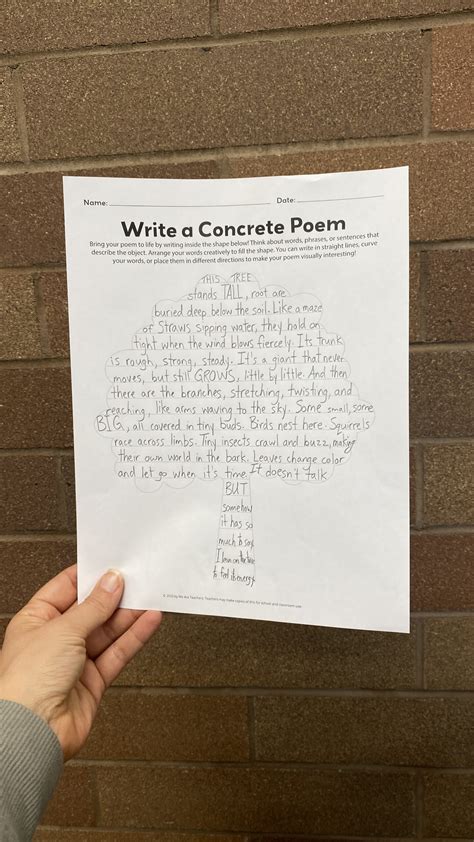 Name: Date:
Write a Concrete Poem
Bring your poem to life by writing inside the shape below! Think about words, phrases, or sentences that
describe the object. Arrange your words creatively to fill the shape. You can write in straight lines, curve
your words, or place them in different directions to make your poem visually interesting!
THIS TREE
stands TALL, root are
buried deep below the soil. Like a maze
of straws sipping water, they hold on
tight when the wind blows fiercely. Its trunk
is rough, strong, steady. It's a giant that never
moves, but still GROWS, little by little. And then
there are the branches, stretching, twisting, and
reaching, like arms waving to the sky. Some small, some
BIG, all covered in tiny buds. Birds nest here. Squirrels
race across limbs. Tiny insects crawl and buzz, making
their own world in the bark. Leaves change color
and let go when it's time. It doesn't talk
BUT
somehow
it has so
much to say
I lean on the tree
to feel its energy.
© 2025 by We Are Teachers. Teachers may make copies of this for school and classroom use.